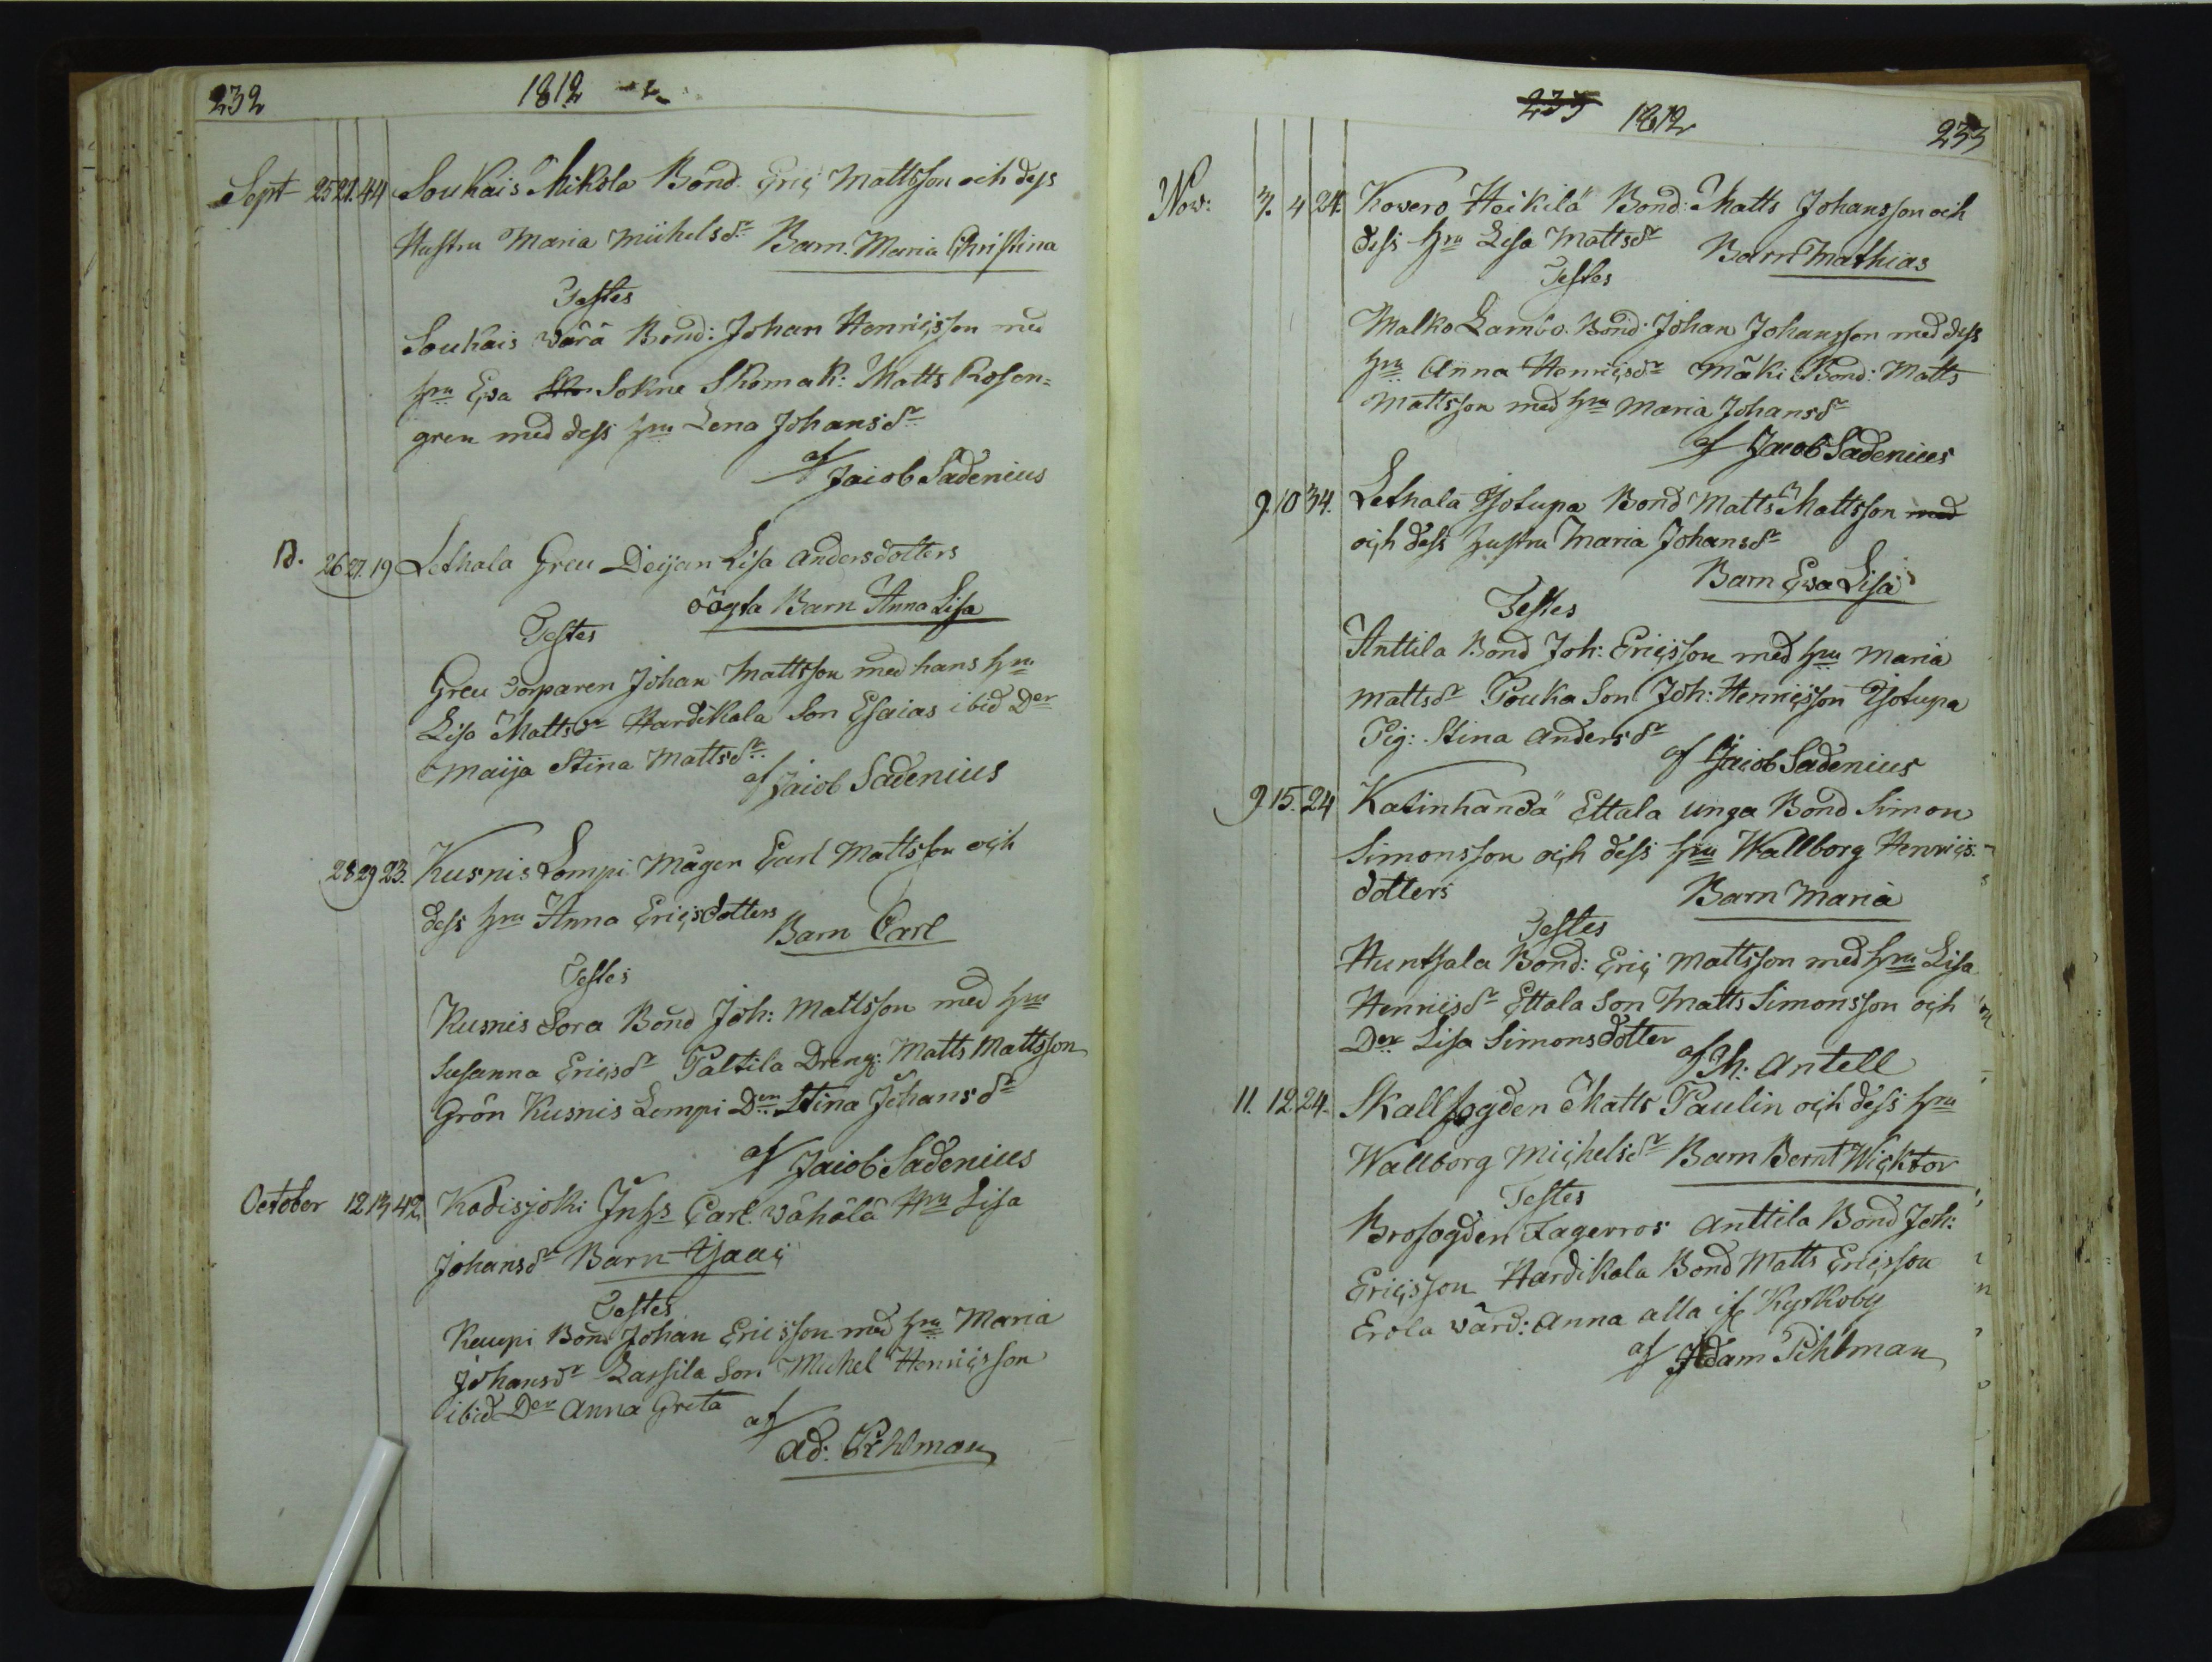 232
1812
Sept 25 27. 44 Soukais Mikola Bond. Eric Mattsson och dess
Hustru Maria Michelsdr Barn. Maria Christina
Testes
Soukais Wärä Bond: Johan Henricsson med
hru Eva Sokne Skomak: Matts Rosen=
gren med dess hru Lena Johansdr
af Jacob Sadenius
D. 26 27. 19 Lethala Greu Deijan Lisa Andersdotters
oägta Barn Anna Lisa
Testes
Greu Torparen Johan Mattsson med hans hru
Lisa Mattsdr Hardikala Son Esaias ibid Der
Maija Stina Mattsdr
af Jacob Sadenius
28 29 23. Kusnis Lempi Mågen Carl Mattsson och
dess hru Anna Ericsdotters
Barn Carl
Testes
Kusnis Sora Bond Joh: Mattsson med hru
Susanna Ericsdr Paltila Dreng: Matts Mattsson
Grön Kusnis Lempi Den Stina Johansdr
af Jacob Sadenius
October 12 13 42. Kadisjoki Inhs Carl Wähälä Hru Lisa
Johansdr Barn Isaac
Testes
Kempi Bond Johan Ericsson med hru Maria
Johansdr Lassila Son Michel Henricsson
ibid Der Anna Greta
af
Ad: Pihlman
233
1812
233
Nov: 3. 4 24. Kovero Heikilä Bond: Matts Johansson och
dess hru Lisa Mattsdr Barn Mathias
Testes
Malko Lambo Bond: Johan Johansson med dess
hru Anna Henricsdr Mäki Bond: Matts
Mattsson med hru Maria Johansdr
af Jacob Sadenius
9. 10 34. Lethala Isotupa Bond Matts Mattsson med
och dess hustru Maria Johansdr
Barn Eva Lisa
Testes
Anttila Bond Joh: Ericsson med hru Maria
Mattsdr Pouka Son Joh: Henricsson Isotupa
Pig: Stina Andersdr
af Jacob Sadenius
9 15. 24 Katinhända Ettala unga Bond Simon
Simonsson och dess hru Wallborg Henrics-
dotters Barn Maria
Testes
Huntsala Bond: Eric Mattsson med hru Lisa
Henricsdr Ettala Son Matts Simonsson och
Der Lisa Simonsdotter
af Joh: Antell
11. 12 24. Skallfogden Matts Paulin och dess hru
Wallborg Michelsdr Barn Bernt Wicktor
Testes
Brofogden Lagerros Anttila Bond Joh:
Ericsson Hardikala Bond Matts Ericsson
Erola Värd: Anna alla if Kyrkoby
af Adam Pihlman